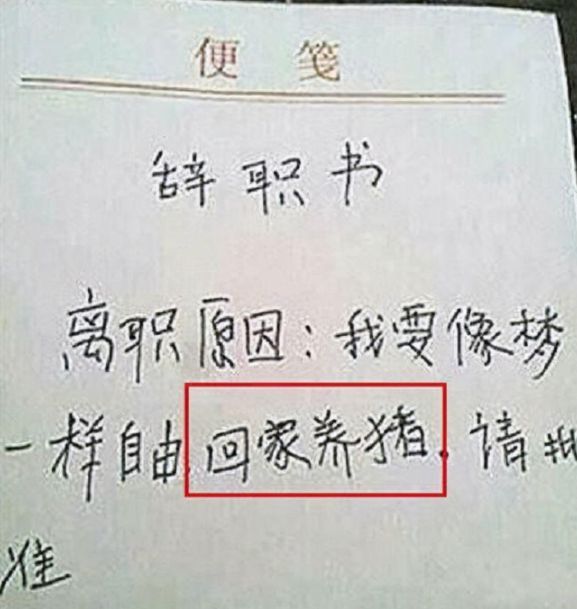 便 笺
辞职书
离职原因：我要像梦
一样自由回家养猪．请批
准